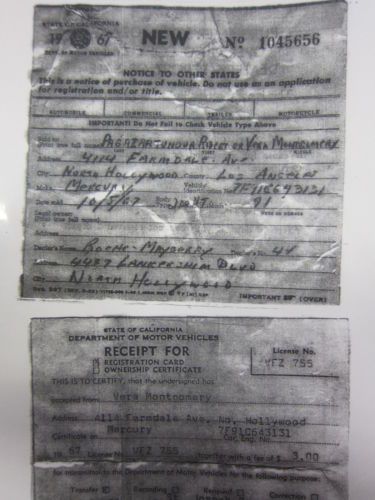 STATE OF CALIFORNIA
19 67 NEW No 1045656
DEPT. OF MOTOR VEHICLES
NOTICE TO OTHER STATES
This is a notice of purchase of vehicle. Do not use as an application
for registration and/or title.
AUTOMOBILE COMMERCIAL TRAILER MOTORCYCLE
IMPORTANT! Do Not Fail to Check Vehicle Type Above
Sold to
(true full name) or Vera Montgomery
Address 4114 Farmdale Ave.
City North Hollywood County Los Angeles
Make Mercury Vehicle Identification No.
Date sold 10/5/67 Body Type 91
Legal owner
(true full name)
Dealer's Name Roche-Mayberry 44
Address 4437 Lankershim Blvd
City North Hollywood
IMPORTANT (OVER)
STATE OF CALIFORNIA
DEPARTMENT OF MOTOR VEHICLES
RECEIPT FOR License No.
REGISTRATION CARD VFZ 755
OWNERSHIP CERTIFICATE
THIS IS TO CERTIFY, that the undersigned has
accepted from Vera Montgomery
Address 4114 Farmdale Ave. No. Hollywood
Mercury 7F91C643131
Certificate on Car, Eng. No.
19 67 License No. VFZ 755 together with a fee of $ 3.00
for transmittal to the Department of Motor Vehicles for the following purpose:
Transfer Recording